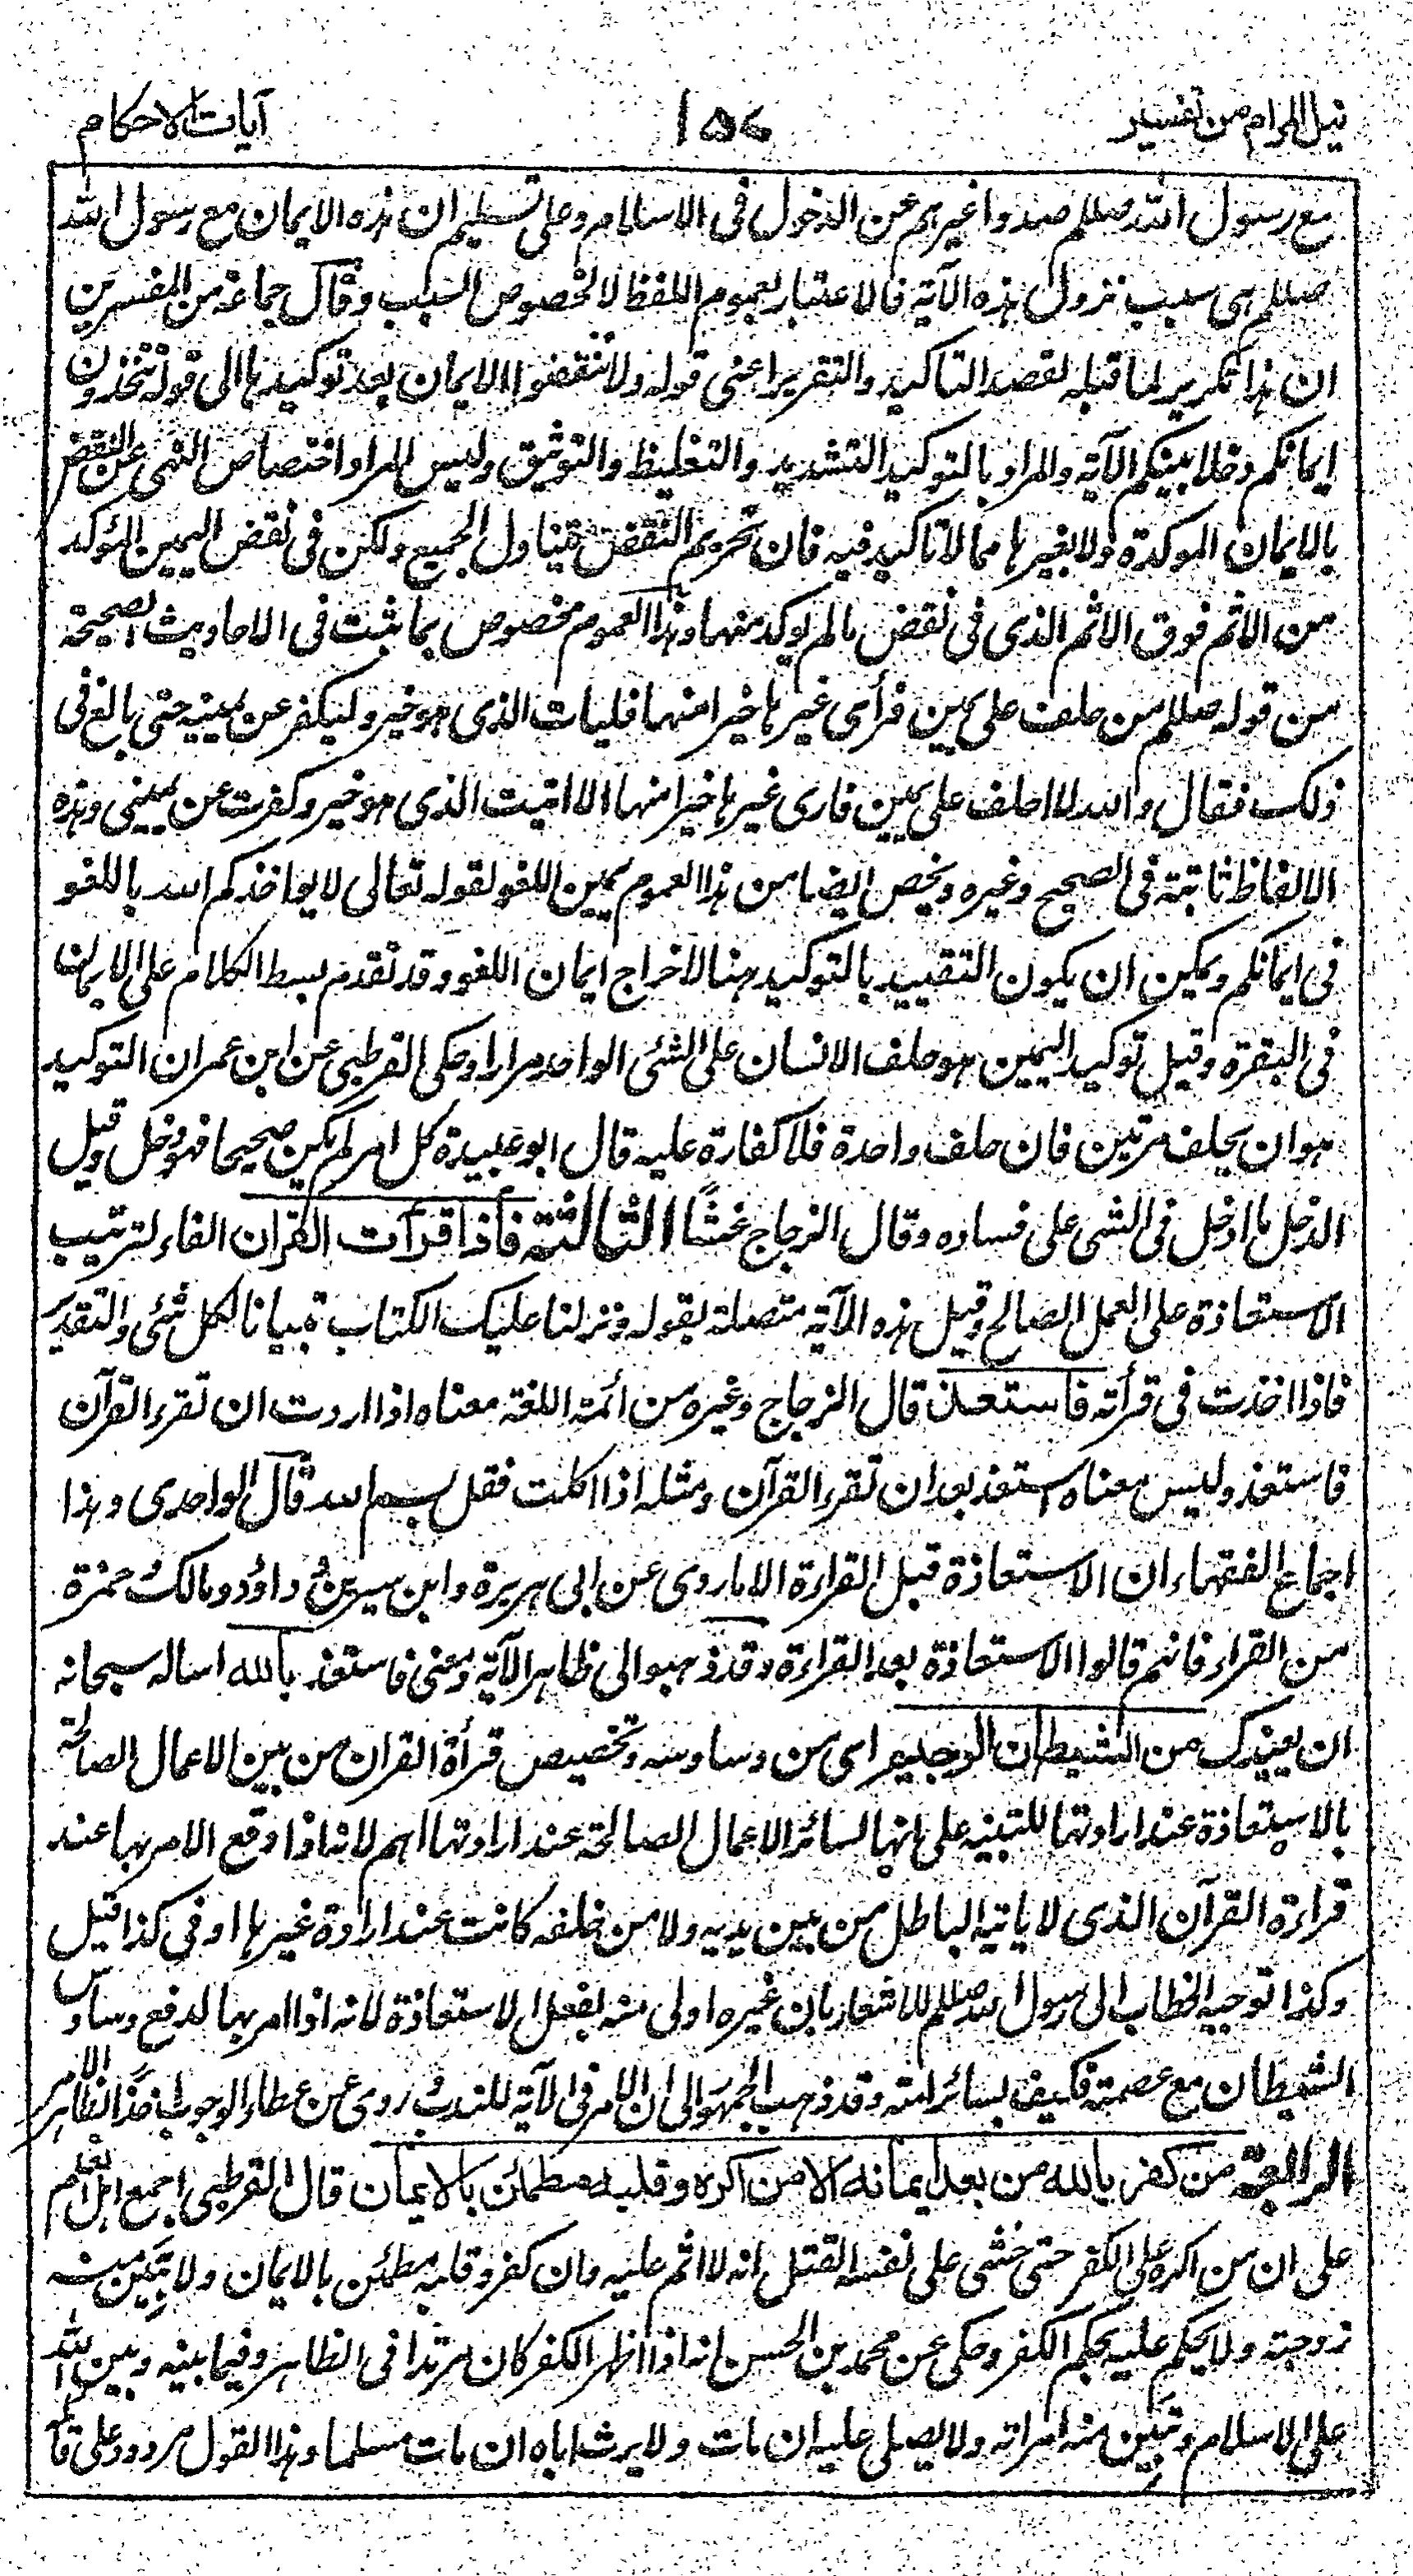 نيل المرام من تفسير ١٥٧ آيات الاحكام
مع رسول الله صللم صدوا غيرهم عن الدخول فى الاسلام وعلى تسليم ان هذه الايمان مع رسول الله
صللم هى سبب نزول هذه الآية فالاعتبار بعموم اللفظ لا لخصوص السبب وقال جماعة من المفسرين
ان هذا تكرير لما قبله لقصد التاكيد والتقرير اعنى قوله ولا تنقضوا الايمان بعد توكيدها الى قوله تتخذون
ايمانكم دخلا بينكم الآية والمراد بالتوكيد التشديد والتغليظ والتوثيق وليس المراد اختصاص النهى عن النقض
بالايمان الموكدة ولا بغيرها مما لا تاكيد فيه فان تحريم النقض يتناول الجميع ولكن فى نقض اليمين المؤكد
من الاثم فوق الاثم الذى فى نقض ما لم يوكد منها وهذا العموم مخصوص بما ثبت فى الاحاديث الصحيحة
من قوله صللم من حلف على يمين فرأى غيرها خيرا منها فليات الذى هو خير وليكفر عن يمينه حتى بالغ فى
ذلك فقال والله لا احلف على يمين فارى غيرها خيرا منها الا اتيت الذى هو خير وكفرت عن يمينى وهذه
الالفاظ ثابتة فى الصحيح وغيره ويخص ايضا من هذا العموم يمين اللغو لقوله تعالى لا يواخذكم الله باللغو
فى ايمانكم ويمكن ان يكون التقييد بالتوكيد هنا لاخراج ايمان اللغو وقد تقدم بسط الكلام على الايمان
فى البقرة وقيل توكيد اليمين هو حلف الانسان على الشئى الواحد مرارا وحكى القرطبى عن ابن عمر ان التوكيد
هو ان يحلف مرتين فان حلف واحدة فلا كفارة عليه قال ابو عبيدة كل امر لم يكن صحيحا فهو دخل وقيل
الدخل ما ادخل فى الشى على فساده وقال الزجاج غشًا الثالثة فاذا قرأت القرآن الفاء لترتيب
الاستعاذة على العمل الصالح وقيل هذه الآية متصلة بقوله ونزلنا عليك الكتاب تبيانا لكل شئى والتقدير
فاذا اخذت فى قرأته فاستعذ قال الزجاج وغيره من ائمة اللغة معناه اذا اردت ان تقرء القرآن
فاستعذ وليس معناه استعذ بعد ان تقرء القرآن ومثله اذا اكلت فقل بسم الله قال الواحدى وهذا
اجماع الفقهاء ان الاستعاذة قبل القراءة الا ما روى عن ابى هريرة وابن سيرين وداؤد ومالك حمزة
من القراء فانهم قالوا الاستعاذة بعد القراءة وقد ذهبوا الى ظاهر الآية ومعنى فاستعذ بالله اساله سبحانه
ان يعيذك من الشيطان الرجيم اى من وساوسه وتخصيص قرأة القرآن من بين الاعمال الصالحة
بالاستعاذة عند ارادتها للتنبيه على انها لسائر الاعمال الصالحة عند ارادتها اهم لانه اذا وقع الامر بها عند
قراءة القرآن الذى لا ياتيه الباطل من بين يديه ولا من خلفه كانت عند ارادة غيرها اوفى كذا قيل
وكذا توجيه الخطاب الى رسول الله صللم للاشعار بان غيره اولى منه بفعل الاستعاذة لانه اذا امر بها لدفع وساوس
الشيطان مع عصمته فكيف بسائر امته وقد ذهب الجمهور الى ان الامر فى الآية للندب وروى عن عطاء الوجوب اخذا بظاهر الامر
الرابعة من كفر بالله من بعد ايمانه الا من اكره وقلبه مطمئن بالايمان قال القرطبى اجمع اهل العلم
على ان من اكره على الكفر حتى خشى على نفسه القتل انه لا اثم عليه وان كفر وقلبه مطمئن بالايمان ولا تبين منه
زوجته ولا يحكم عليه بحكم الكفر وحكى عن محمد بن الحسن انه اذا اظهر الكفر كان مرتدا فى الظاهر وفيما بينه وبين الله
على الاسلام وتبين منه امراته ولا يصلى عليه ان مات ولا يرث اباه ان مات مسلما وهذا القول مردود على قائله